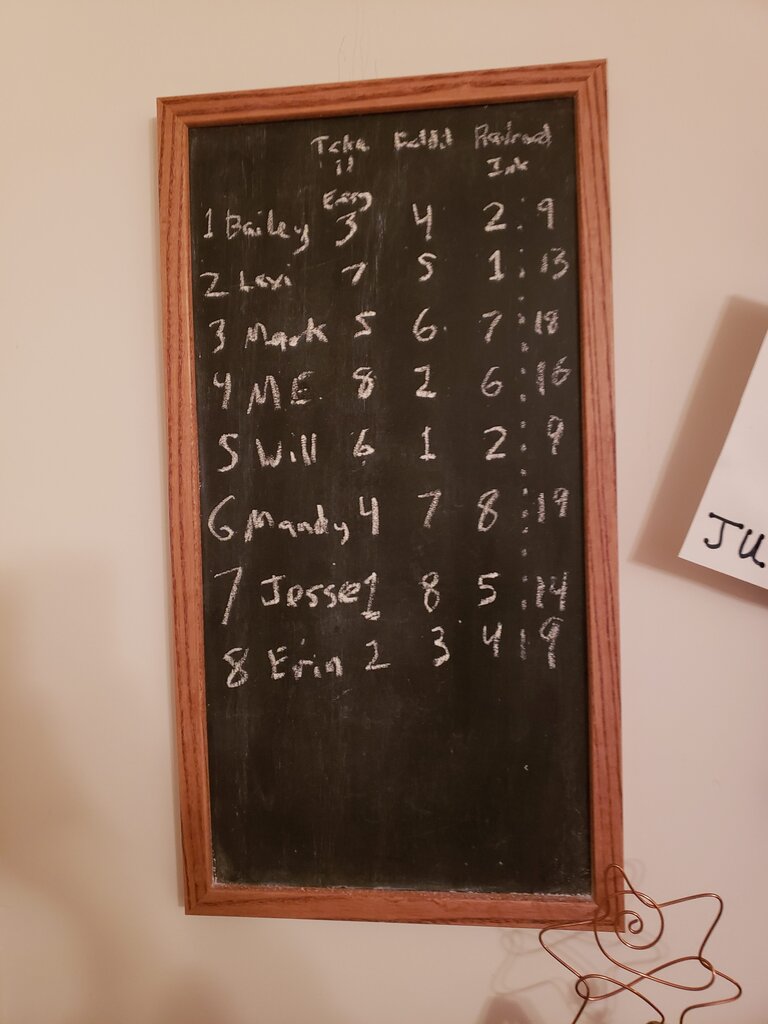 Take Railroad
it Ink
Easy
1 Bailey 3 4 2 : 9
2 Lexi 7 5 1 : 13
3 Mark 5 6 7 : 18
4 ME 8 2 6 : 16
5 Will 6 1 2 : 9
6 Mandy 4 7 8 : 19
7 Jesse 1 8 5 : 14
8 Erin 2 3 4 : 9
JU